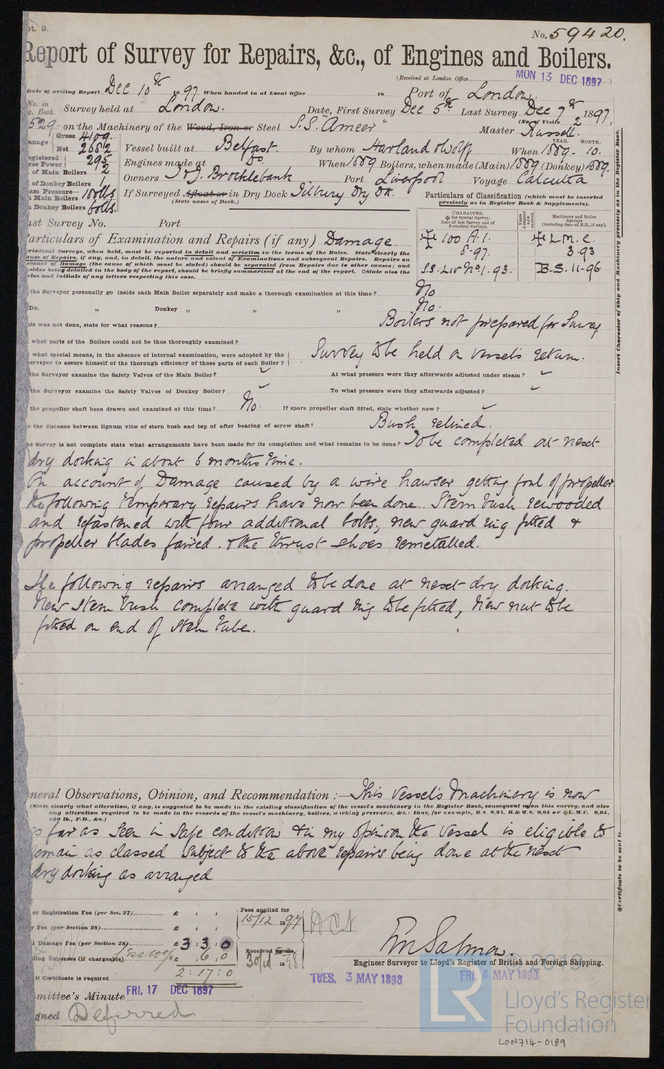 No. 59420.
Report of Survey for Repairs, &c., of Engines and Boilers.
(Received at London Office MON 13 DEC 1897
Date of writing Report Dec 10th 1897 When handed in at Local Office 18 Port of London.
Survey held at London. Date, First Survey Dec 5th Last Survey Dec 7th 1897
529 on the Machinery of the Wood, Iron or Steel S.S. "Ameer" Master Russell.
Gross 4109
Net 2652
Vessel built at Belfast. By whom Harland & Wolff When 1889. 10.
Registered Horse Power 295
Engines made at Do. When 1889 Boilers, when made (Main) 1889 (Donkey) 1889.
of Main Boilers 2
Owners T & J. Brocklebank Port Liverpool Voyage Calcutta
of Donkey Boilers
If Surveyed Afloat or in Dry Dock Tilbury Dry Dk.
(State name of Dock.)
Particulars of Classification (which must be inserted
precisely as in Register Book & Supplements).
in Main Boilers
in Donkey Boilers
Last Survey No. Port
Particulars of Examination and Repairs (if any) Damage
100 A.1. L.M.C.
8-97. 3-93
S.S. Liv No 1. 93. B.S. 11-96
the Surveyor personally go inside each Main Boiler separately and make a thorough examination at this time? No
Do. " Donkey " " " No.
this was not done, state for what reasons? Boilers not prepared for Survey
what parts of the Boilers could not be thus thoroughly examined?
what special means, in the absence of internal examination, were adopted by the
Surveyor to assure himself of the thorough efficiency of those parts of each Boiler? Survey to be held on vessel's return.
the Surveyor examine the Safety Valves of the Main Boiler? At what pressure were they afterwards adjusted under steam?
the Surveyor examine the Safety Valves of Donkey Boiler? To what pressure were they afterwards adjusted?
the propeller shaft been drawn and examined at this time? No. If spare propeller shaft fitted, state whether new?
the distance between lignum vitæ of stern bush and top of after bearing of screw shaft? Bush relined.
the Survey is not complete state what arrangements have been made for its completion and what remains to be done? To be completed at next
dry docking in about 6 months time.
On account of Damage caused by a wire hawser getting foul of propeller
the following temporary repairs have now been done. Stern bush rewooded
and refastened with four additional bolts, new guard ring fitted &
propeller blades faired. & the thrust shoes remetalled.
The following repairs arranged to be done at next dry docking.
New Stern bush complete with guard ring to be fitted, New nut to be
fitted on end of Stern tube.
General Observations, Opinion, and Recommendation :— This vessel's Machinery is now
(State clearly what alteration, if any, is suggested to be made in the existing classification of the vessel's machinery in the Register Book, consequent upon this survey, and also
any alteration required to be made in the records of the vessel's machinery, boilers, working pressures, &c.: thus, for example, B.S. 9,95, B.& M.S. 9,95 or L.M.C. 9,95,
as far as seen in safe condition & in my opinion the vessel is eligible to
remain as classed subject to the above repairs being done at the next
dry docking as arranged
or Registration Fee (per Sec. 27) £ : :
Fee (per Section 28) £ : :
Damage Fee (per Section 28) £ 3 : 3 : 0
Expenses (if chargeable) £ 6.0
2:17:0
Fees applied for
15/12 1897
Received
30/4 1898
if Certificate is required
Engineer Surveyor to Lloyd's Register of British and Foreign Shipping.
TUES. 3 MAY 1898
FRI. 6 MAY 1898
Committee's Minute FRI. 17 DEC 1897
Deferred
Insert Character of Ship and Machinery precisely as in the Register Book.
Certificate to be sent to
LR
Lloyd's Register
Foundation
LON714-0189